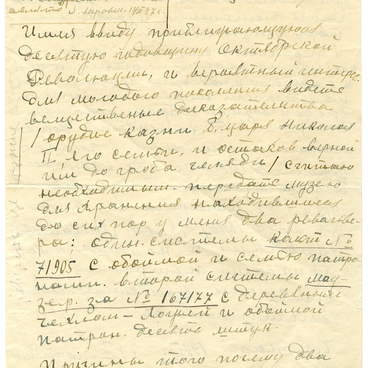 Имея ввиду приближающуюся
десятую годовщину Октябрьской
Революции, и вероятный интерес
для молодого поколения видеть
вещественные доказательства
/орудие казни б. царя Николая
II его семьи и остаков верной
им до гроба челяди/ считаю
необходимым передать музею
для хранения находившиеся
до сих пор у меня два револьве-
ра: один системы кольт №
71905 с обоймой и семью патро
нами. второй системы мау
зер. за № 167177 с деревянным
чехлом-ложей и обоймой
патрон. десять штук.
Причины того почему два